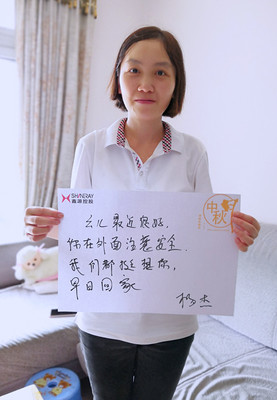 SHINRAY
鑫源控股
中秋
幺儿最近很好,
你在外面注意安全.
我们都挺想你,
早日回家
杨杰